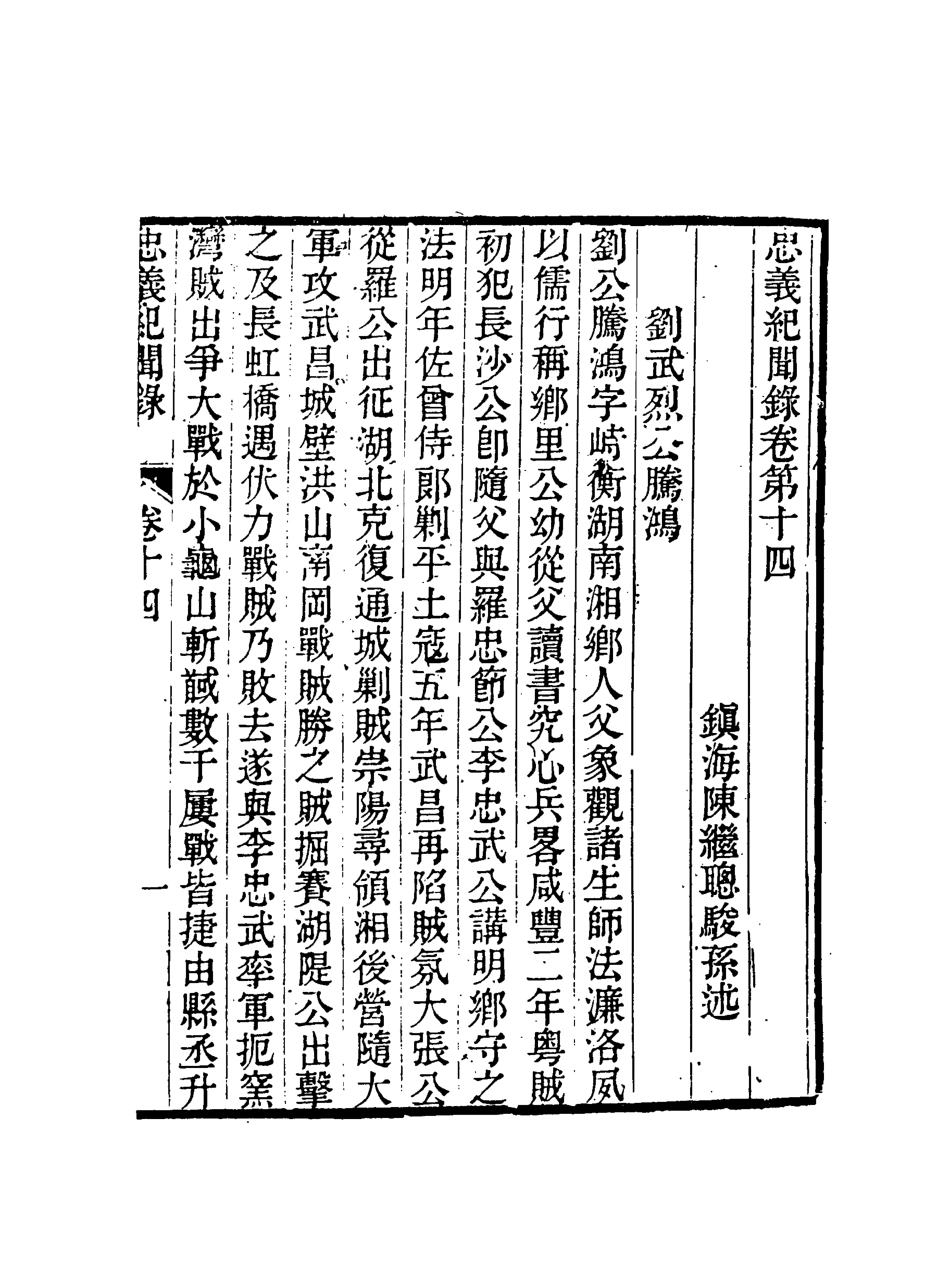 忠義紀聞錄卷第十四
鎭海陳繼聰駿孫述
劉武烈公騰鴻
劉公騰鴻字峙衡湖南湘鄉人父象觀諸生師法濂洛夙
以儒行稱鄉里公幼從父讀書究心兵畧咸豐二年粵賊
初犯長沙公卽隨父與羅忠節公李忠武公講明鄉守之
法明年佐曾侍郞剿平土寇五年武昌再陷賊氛大張公
從羅公出征湖北克復通城剿賊崇陽尋領湘後營隨大
軍攻武昌城壁洪山南岡戰賊勝之賊掘賽湖隄公出擊
之及長虹橋遇伏力戰賊乃敗去遂與李忠武率軍扼窰
灣賊出爭大戰於小龜山斬馘數千屢戰皆捷由縣丞升
忠義紀聞錄 卷十四 一